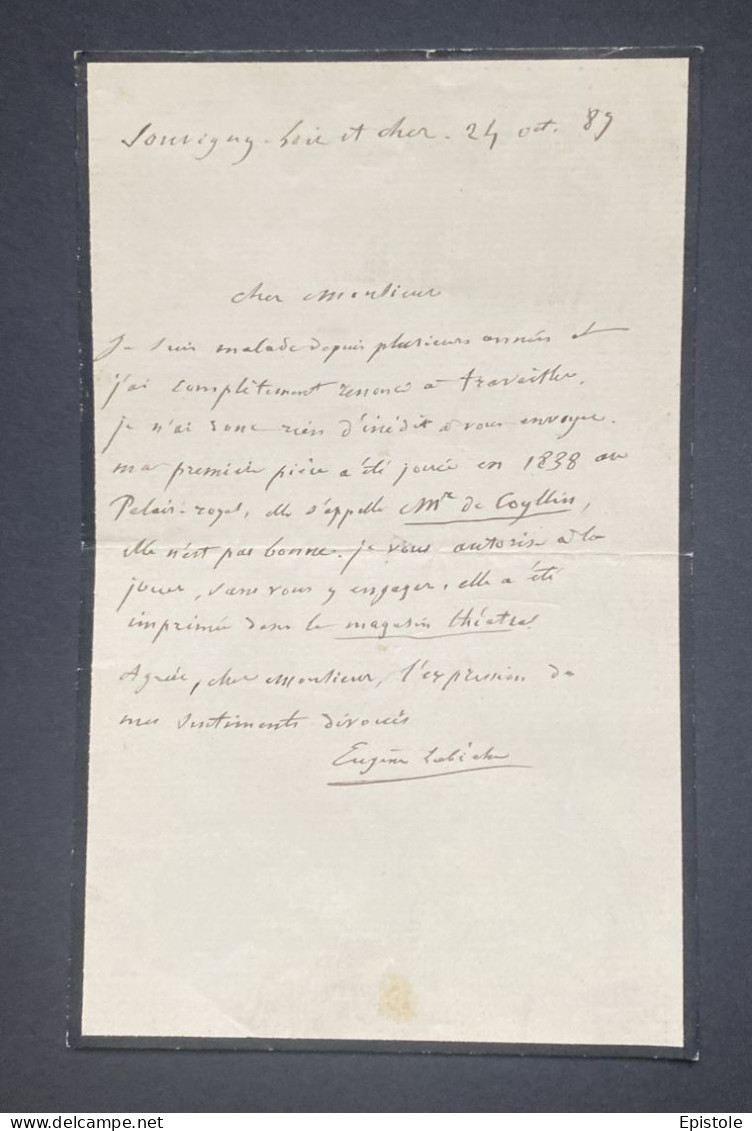 Souvigny - Loir et cher - 24 oct. 87
cher Monsieur
Je suis malade depuis plusieurs années et
j'ai complètement renoncé à travailler.
je n'ai donc rien d'inédit à vous envoyer.
ma première pièce a été jouée en 1838 au
Palais-royal, elle s'appelle Mr de Coyllin,
elle n'est pas bonne. je vous autorise à la
jouer, sans vous y engager. elle a été
imprimée dans le magasin théatral
Agréez, cher Monsieur, l'expression de
mes sentiments dévoués
Eugène Labiche
Delcampe.net
Epistole